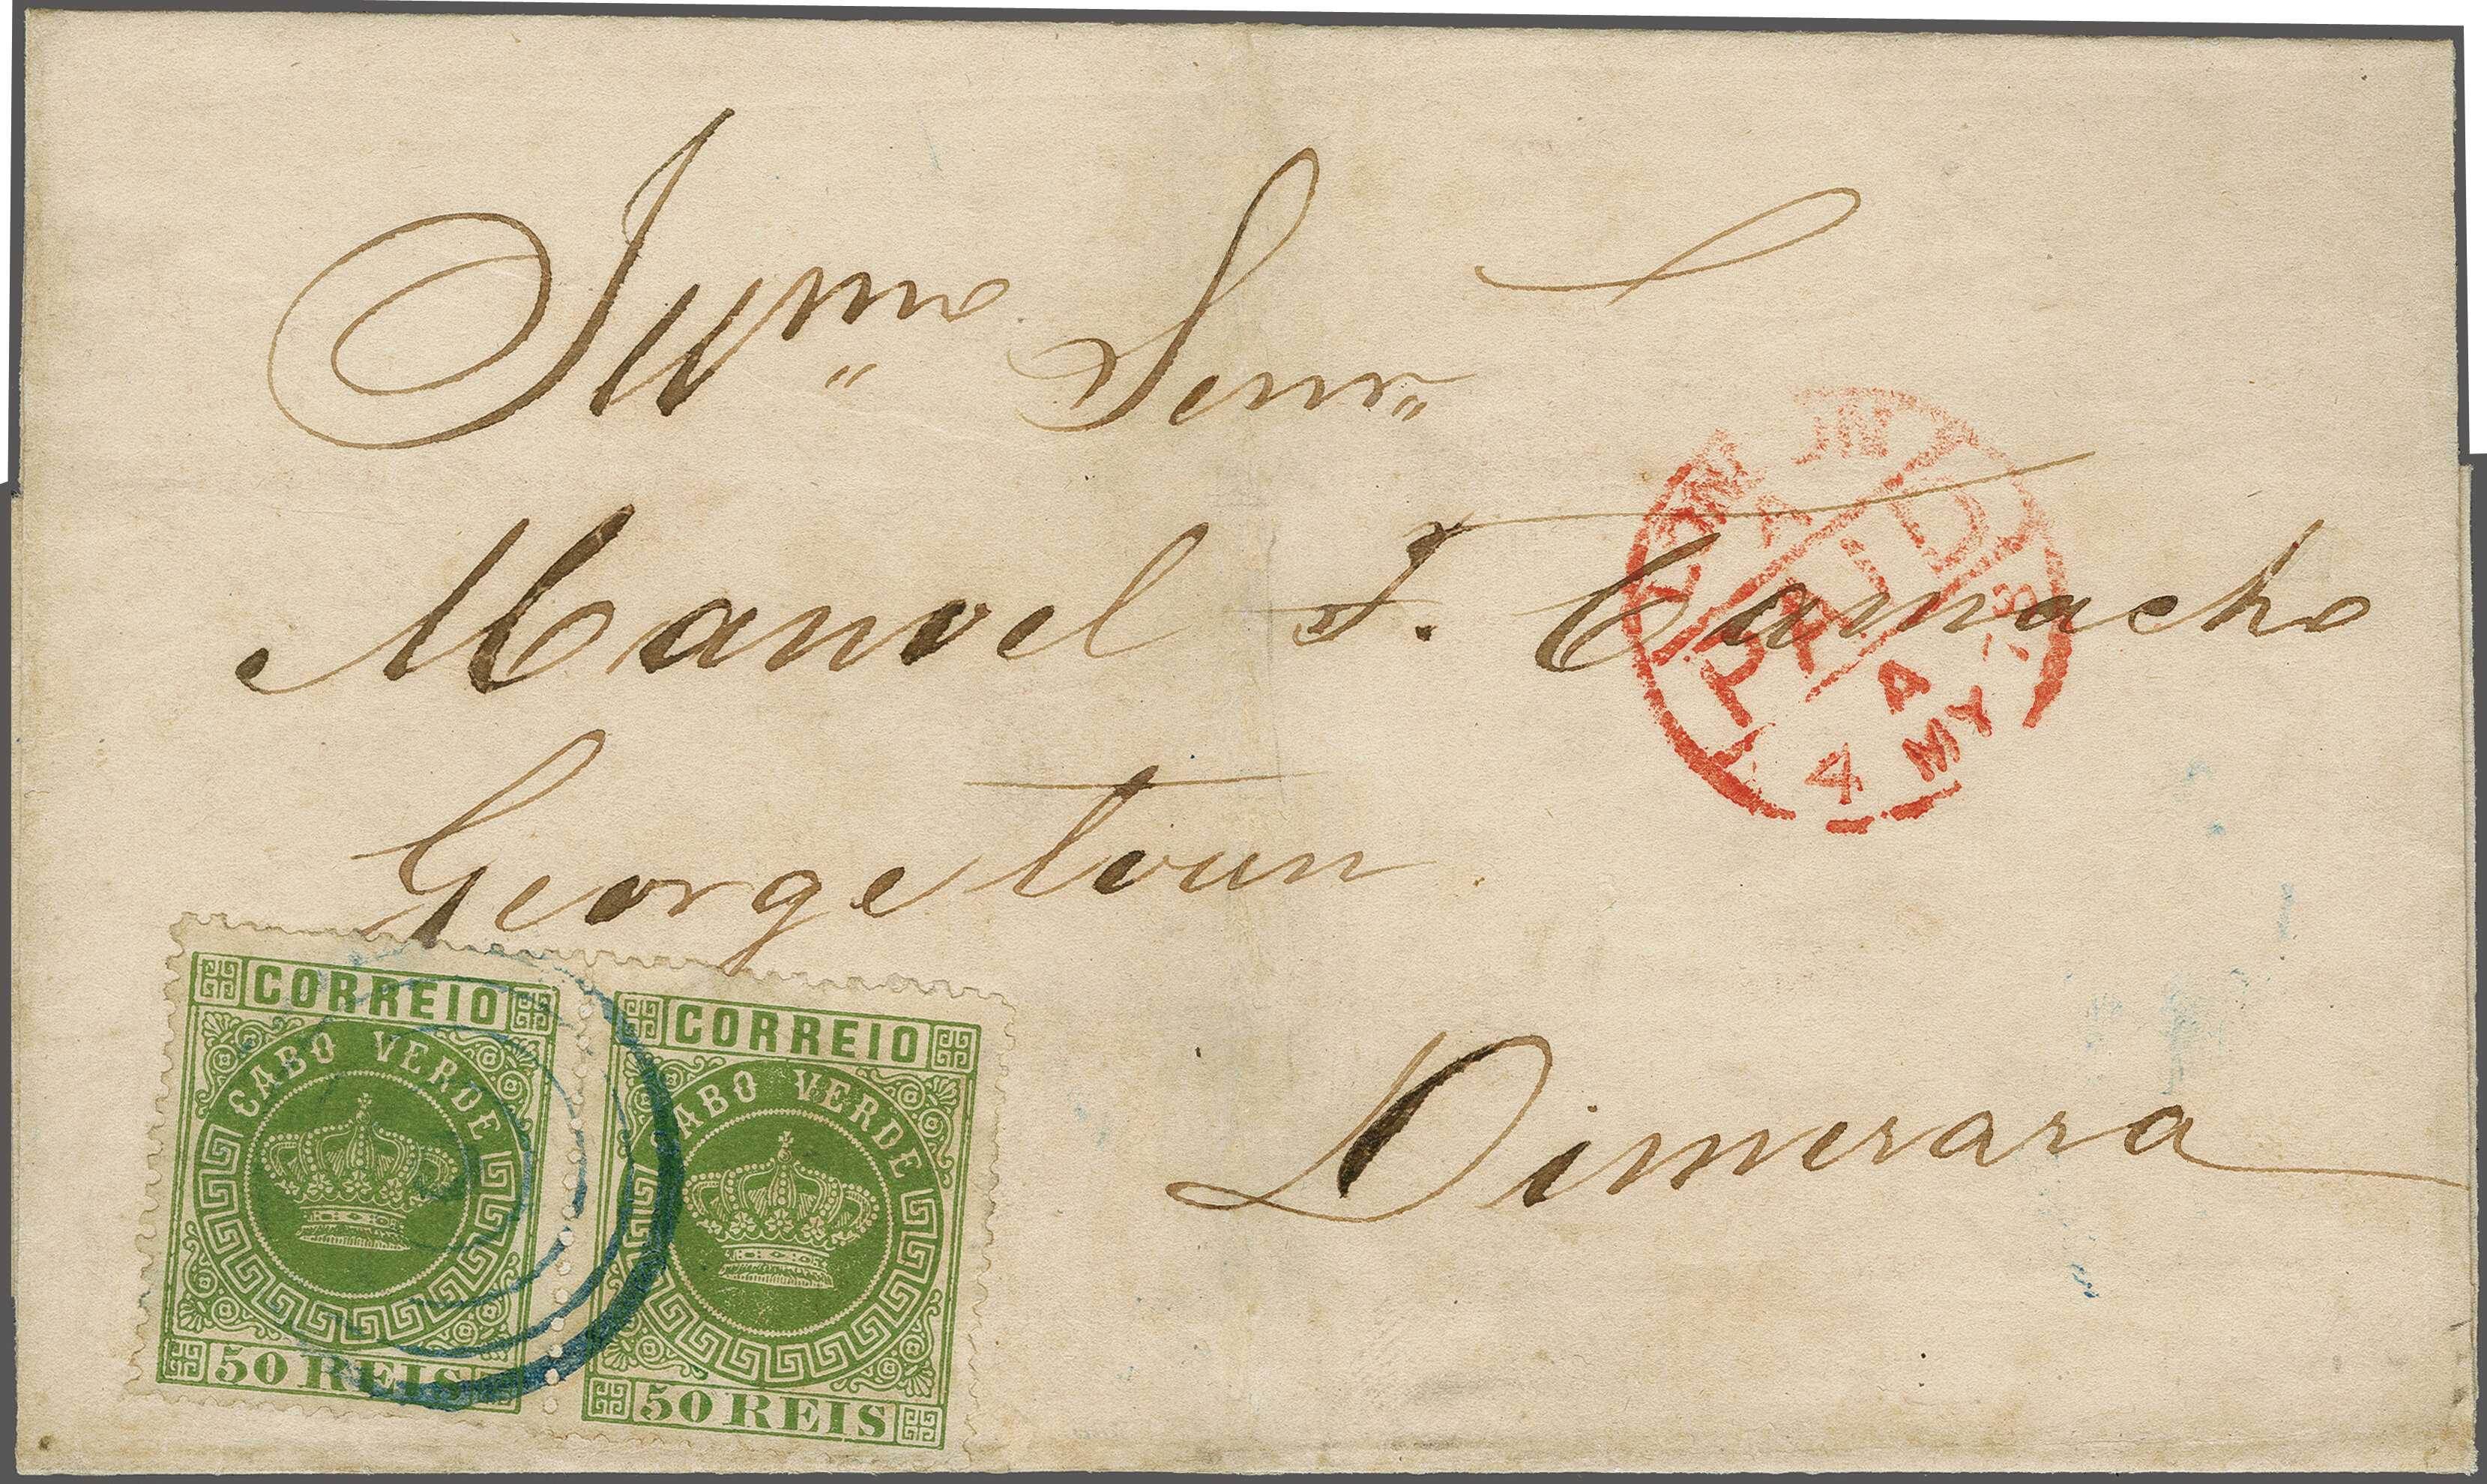 Illmo Senr
Manoel F. Camacho
Georgetoun
Dimerara
LONDON
A
PAID
A
4 MY
CORREIO
CABO VERDE
50 REIS
CORREIO
CABO VERDE
50 REIS